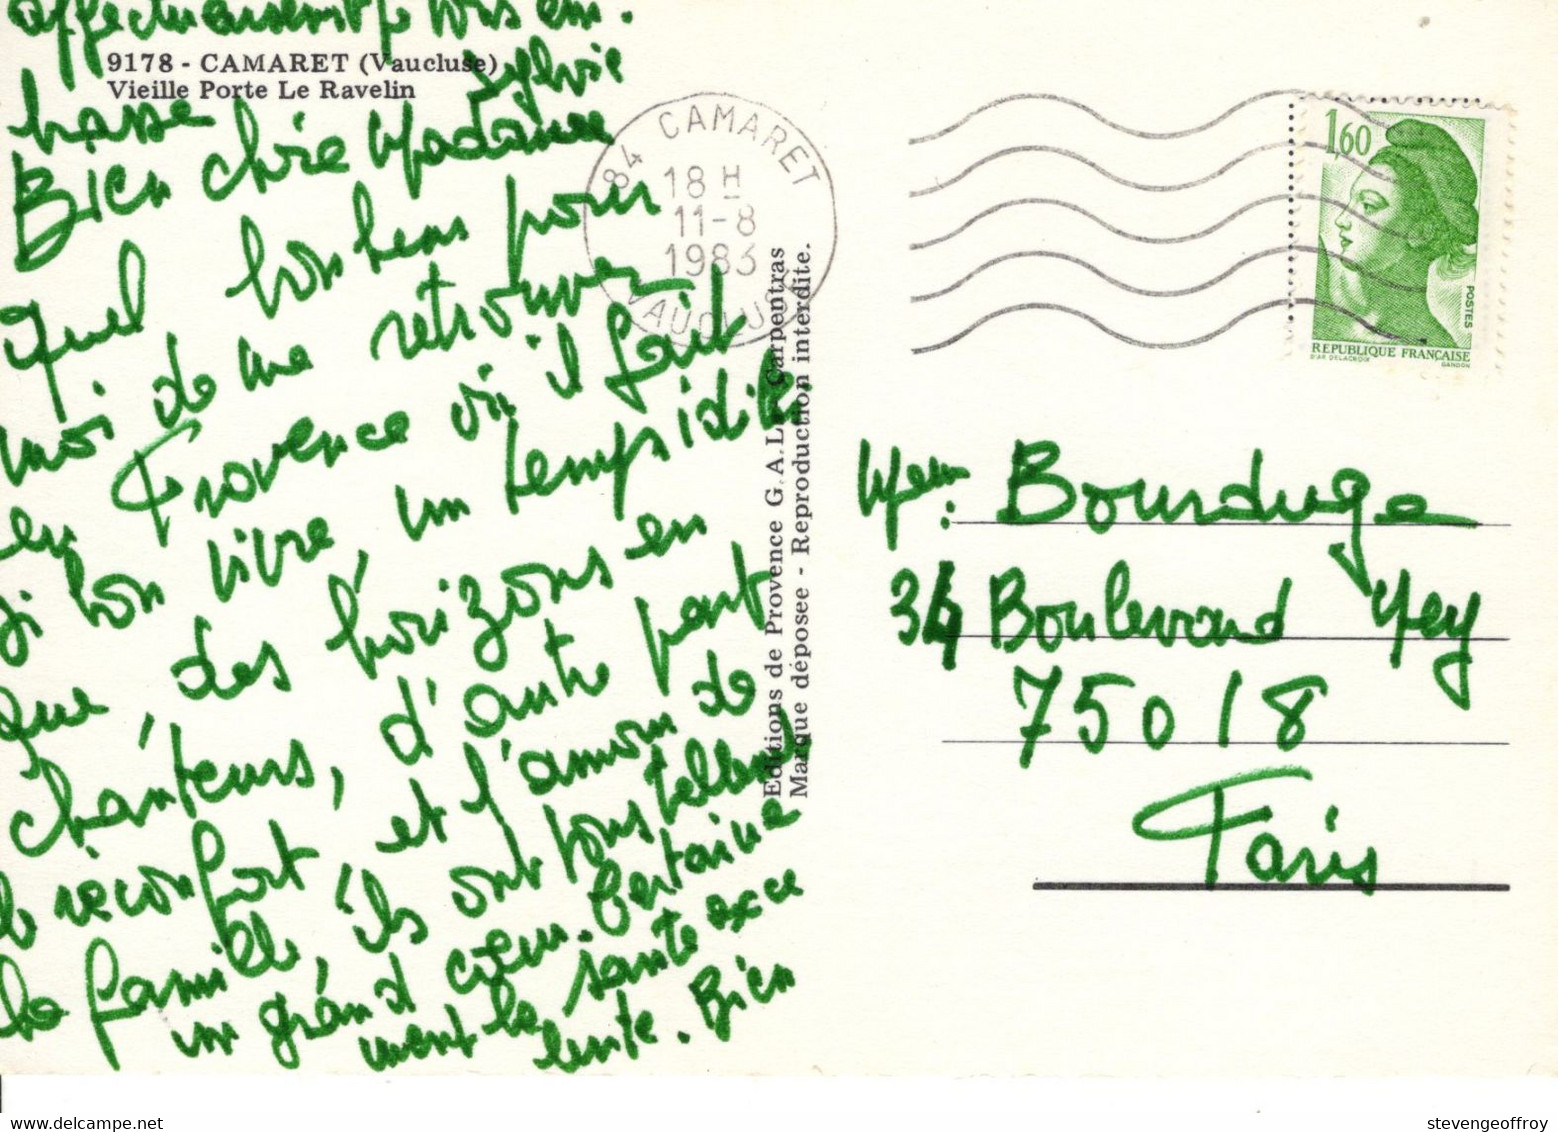 affectueusement je vous em.
9178 - CAMARET (Vaucluse)
Vieille Porte Le Ravelin
Sylvie
brasse
Bien chère Madame
Quel bonheur pour
moi de me retrouver
en Provence où il fait
si bon vivre, un temps idyllic
que, des horizons en
chanteurs, d'autre part
le réconfort, et l'amour de
la famille, ils ont tous tellement
un grand cœur. Certaine
ment la santé exce
lente. Bien
84 CAMARET
18 H
11-8
1983
VAUCLUSE
Editions de Provence G.A.L. Carpentras
Marque déposee - Reproduction interdite.
1,60
POSTES
REPUBLIQUE FRANÇAISE
D'AP. DELACROIX
GANDON
Mem: Bourduge
34 Boulevard Ney
75018
Paris
stevengeoffroy